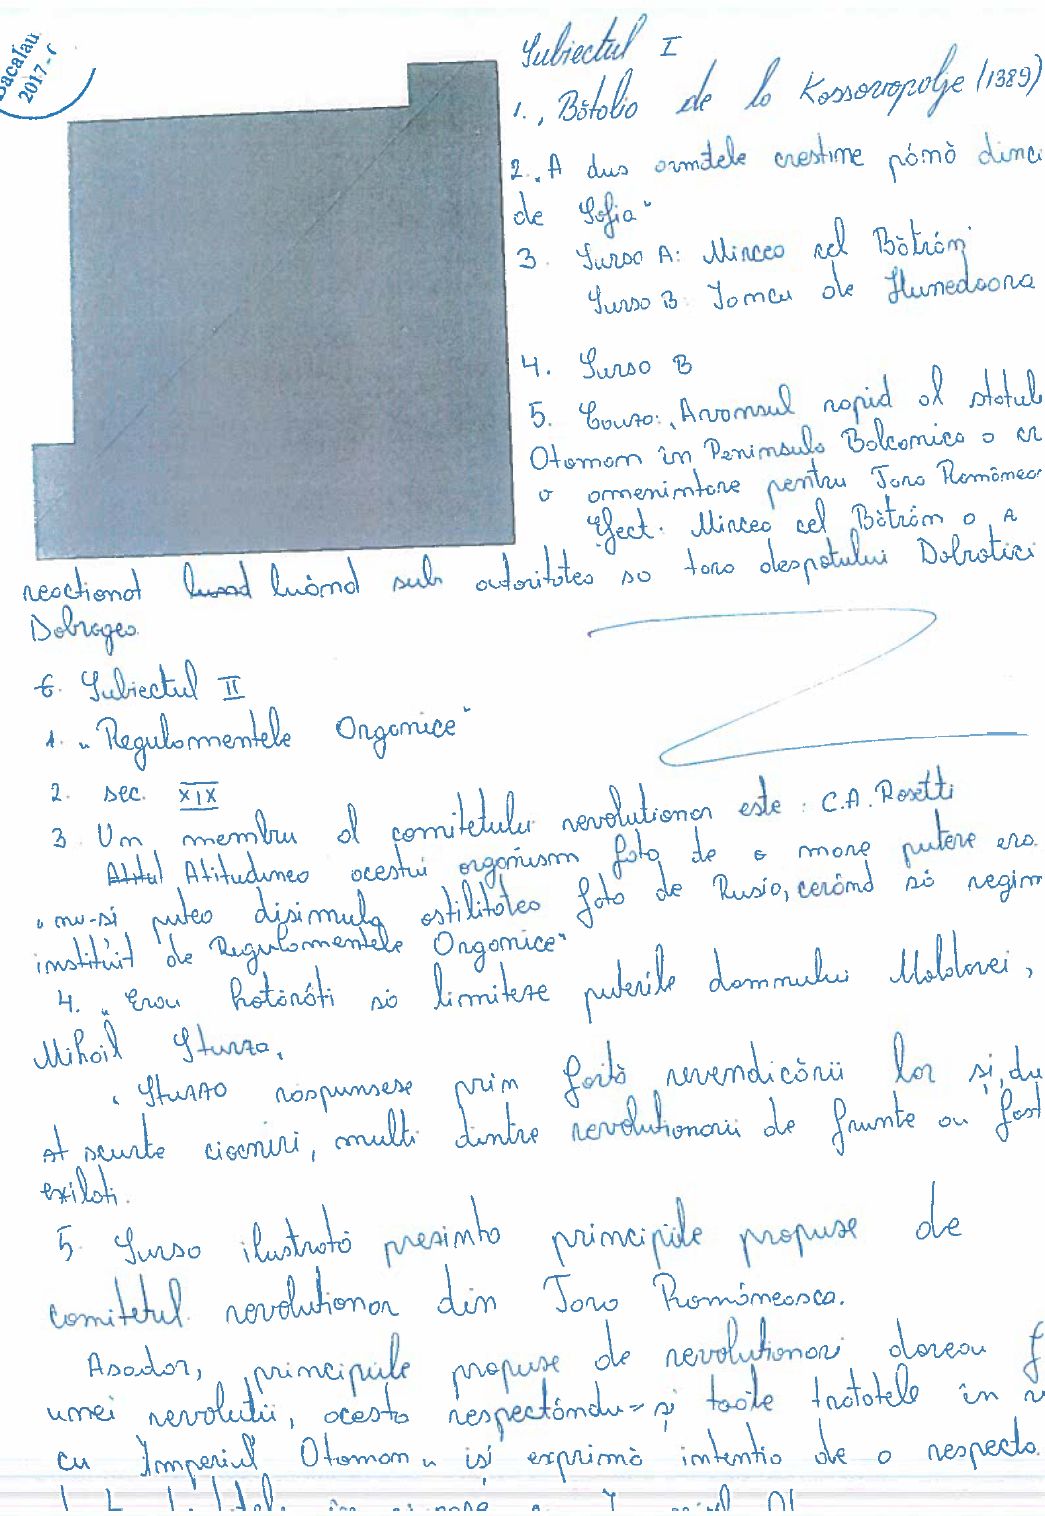 Bacalau
2017 -
Subiectul I
1. „Bătălia de la Kossovopolje (1389)
2. „A dus armatele creștine până dinco
de Sofia"
3. Sursa A: Mircea cel Bătrân
Sursa B: Iancu de Hunedoara
4. Sursa B
5. Cauza: „Avansul rapid al statul
Otoman în Peninsula Balcanica a cr
o amenintare pentru Tara Româneas
Efect: Mircea cel Bătrân a A
reactionat luând sub autoritatea sa tara despotului Dobrotici
Dobrogea.
6. Subiectul II
1. „Regulamentele Organice"
2. sec. XIX
3. Un membru al comitetului revolutionar este: C.A. Rosetti
Atitudinea acestui organism fata de o mare putere era.
„nu-si putea disimula ostilitatea fata de Rusia, cerând să regim
instituit de Regulamentele Organice"
4. „Erau hotărâti să limiteze puterile domnului Moldovei,
Mihail Sturza.
„Sturza raspunsese prin fortă revendicării lor și, du
at scurte ciocniri, multi dintre revolutionarii de frunte au fost
exilati.
5. Sursa ilustrată prezinta principiile propuse de
comitetul revolutionar din Tara Româneasca.
Asadar, principiile propuse de revolutionari doreau f
unei revolutii, acesta respectându-și toate tratatele în r
cu Imperiul Otoman „ isi exprimă intentia de a respecta